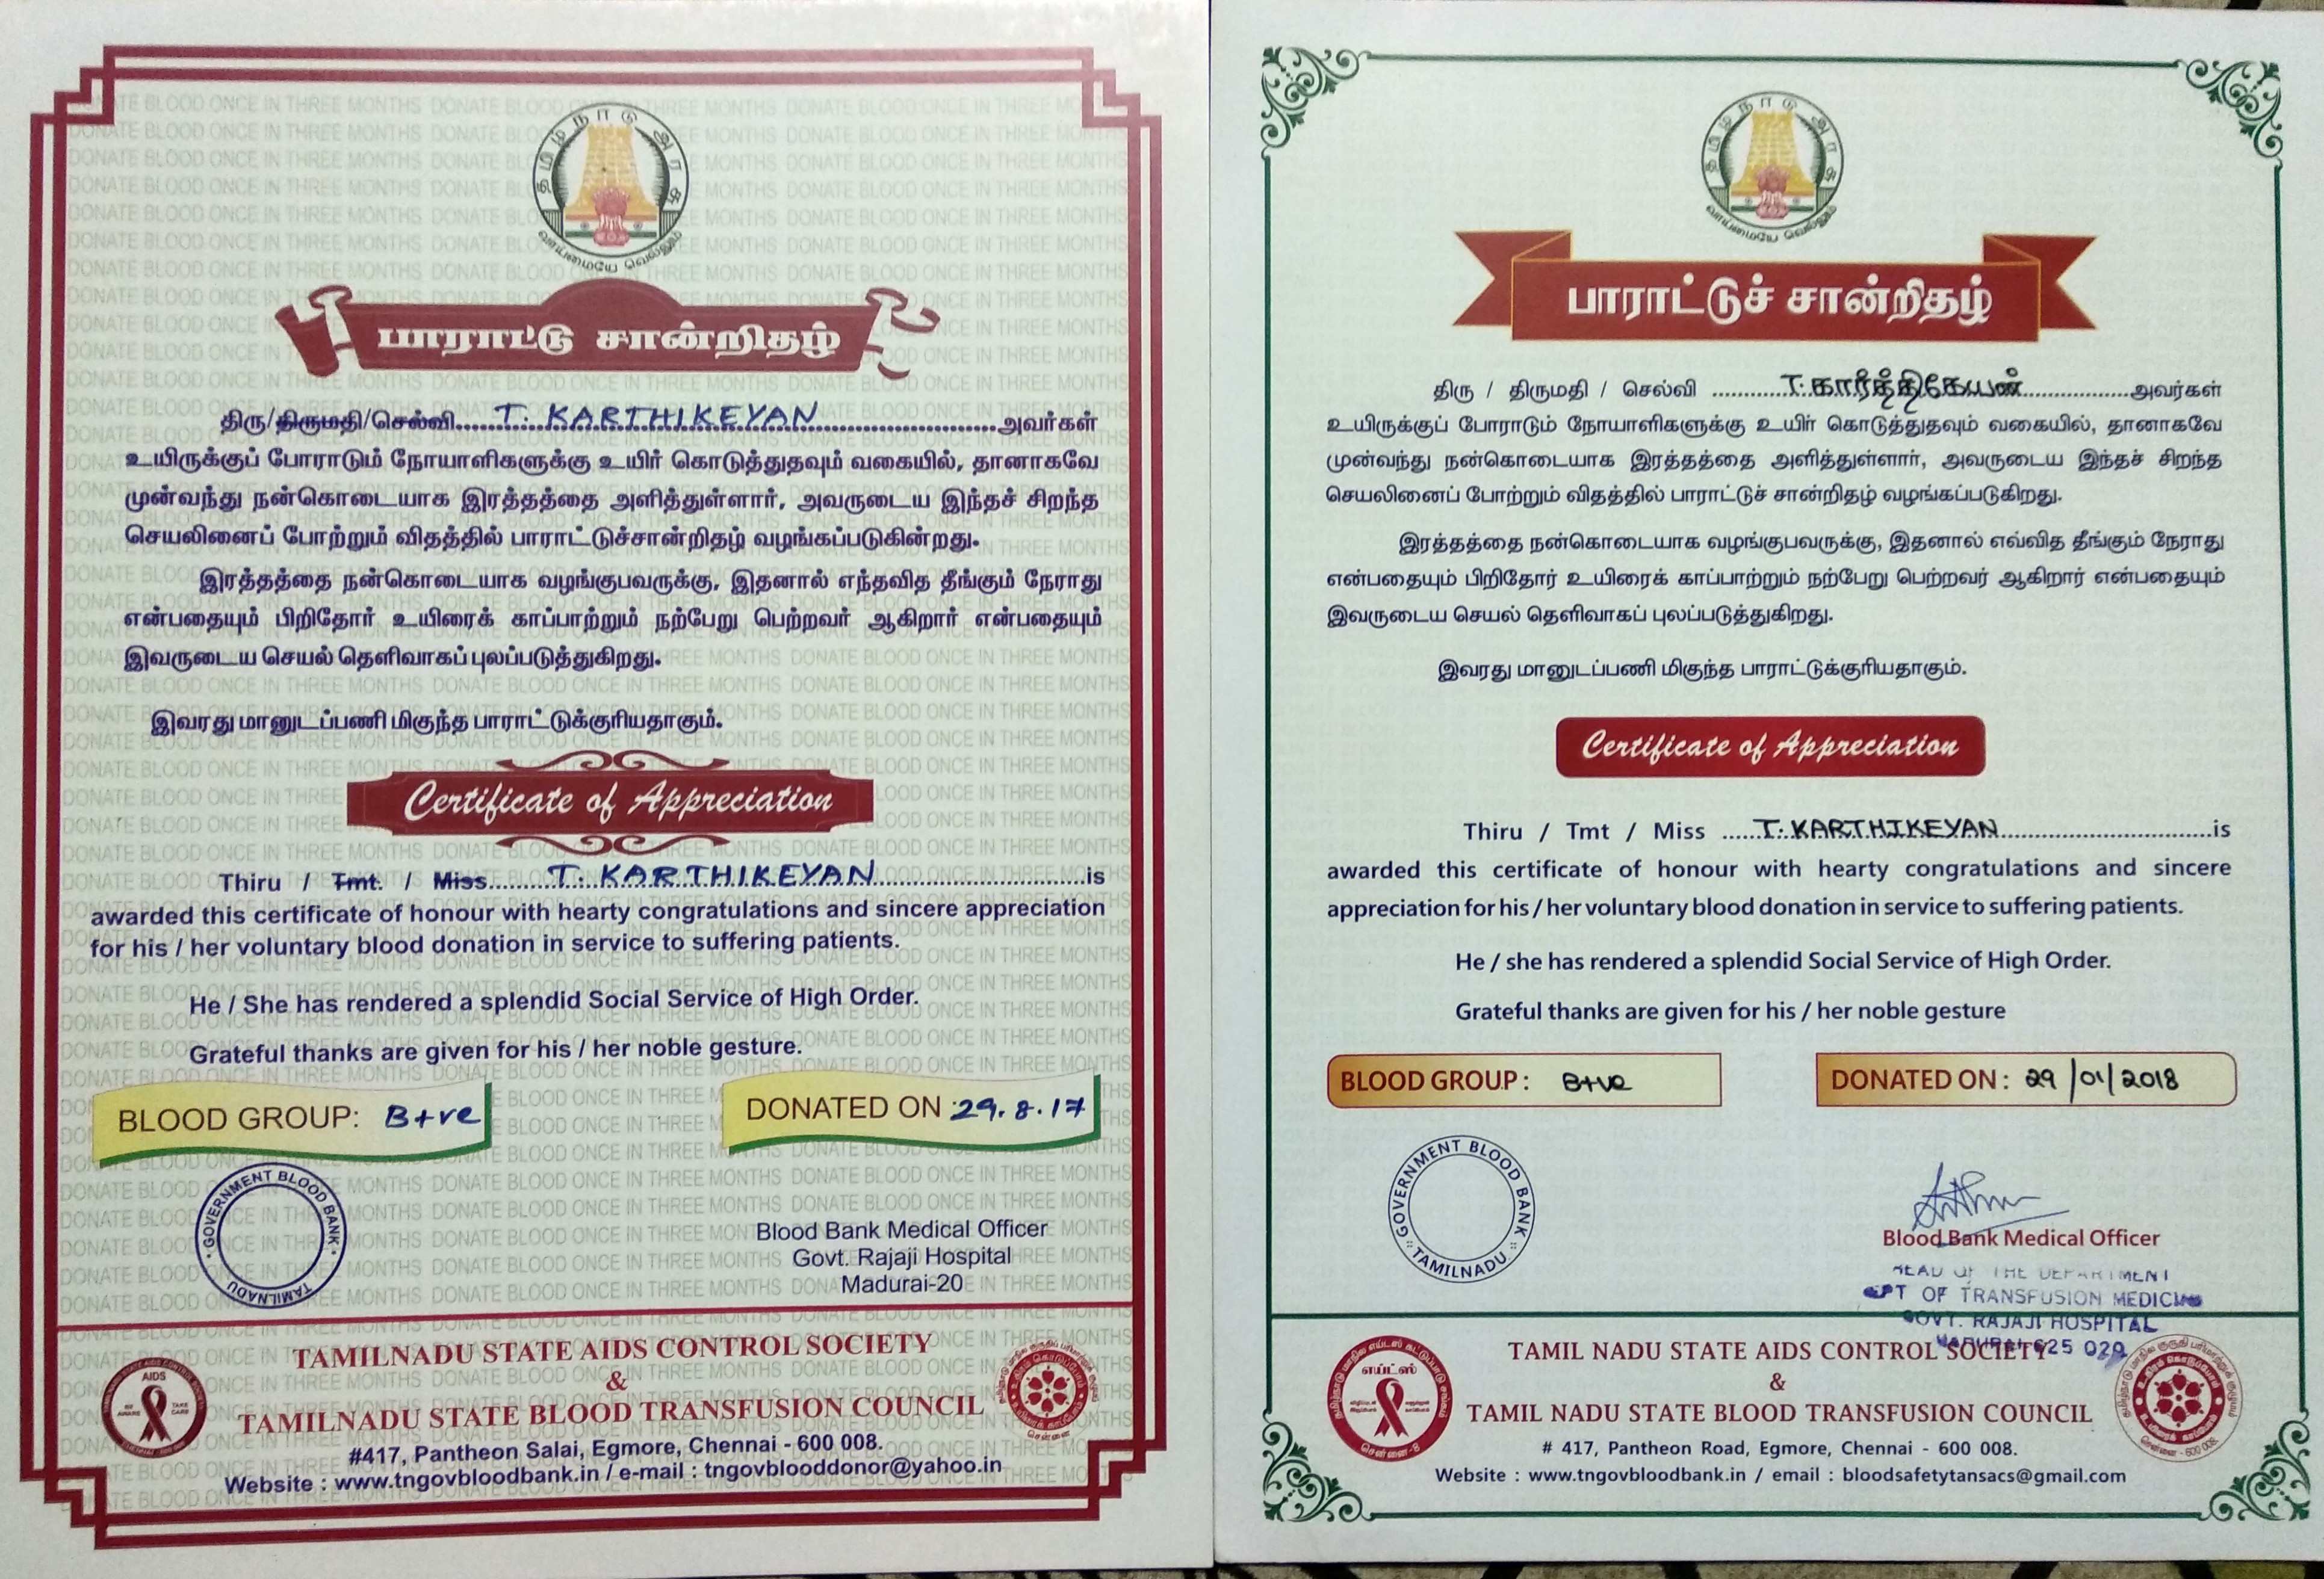 தமிழ்நாடு அரசு
வாய்மையே வெல்லும்
பாராட்டு சான்றிதழ்
திரு/திருமதி/செல்வி......T. KARTHIKEYAN......அவர்கள்
உயிருக்குப் போராடும் நோயாளிகளுக்கு உயிர் கொடுத்துதவும் வகையில், தானாகவே
முன்வந்து நன்கொடையாக இரத்தத்தை அளித்துள்ளார், அவருடைய இந்தச் சிறந்த
செயலினைப் போற்றும் விதத்தில் பாராட்டுச்சான்றிதழ் வழங்கப்படுகின்றது.
இரத்தத்தை நன்கொடையாக வழங்குபவருக்கு, இதனால் எந்தவித தீங்கும் நேராது
என்பதையும் பிறிதோர் உயிரைக் காப்பாற்றும் நற்பேறு பெற்றவர் ஆகிறார் என்பதையும்
இவருடைய செயல் தெளிவாகப் புலப்படுத்துகிறது.
இவரது மானுடப்பணி மிகுந்த பாராட்டுக்குரியதாகும்.
Certificate of Appreciation
Thiru / Tmt. / Miss......T. KARTHIKEYAN......is
awarded this certificate of honour with hearty congratulations and sincere appreciation
for his / her voluntary blood donation in service to suffering patients.
He / She has rendered a splendid Social Service of High Order.
Grateful thanks are given for his / her noble gesture.
BLOOD GROUP: B+ve
DONATED ON 29.8.17
GOVERNMENT BLOOD BANK
TAMILNADU
Blood Bank Medical Officer
Govt. Rajaji Hospital
Madurai-20
TAMILNADU STATE AIDS CONTROL SOCIETY
&
TAMILNADU STATE BLOOD TRANSFUSION COUNCIL
#417, Pantheon Salai, Egmore, Chennai - 600 008.
Website : www.tngovbloodbank.in / e-mail : tngovblooddonor@yahoo.in
AIDS
DONATE BLOOD ONCE IN THREE MONTHS
தமிழ்நாடு அரசு
வாய்மையே வெல்லும்
பாராட்டுச் சான்றிதழ்
திரு / திருமதி / செல்வி ......T. கார்த்திகேயன்......அவர்கள்
உயிருக்குப் போராடும் நோயாளிகளுக்கு உயிர் கொடுத்துதவும் வகையில், தானாகவே
முன்வந்து நன்கொடையாக இரத்தத்தை அளித்துள்ளார், அவருடைய இந்தச் சிறந்த
செயலினைப் போற்றும் விதத்தில் பாராட்டுச் சான்றிதழ் வழங்கப்படுகிறது.
இரத்தத்தை நன்கொடையாக வழங்குபவருக்கு, இதனால் எவ்வித தீங்கும் நேராது
என்பதையும் பிறிதோர் உயிரைக் காப்பாற்றும் நற்பேறு பெற்றவர் ஆகிறார் என்பதையும்
இவருடைய செயல் தெளிவாகப் புலப்படுத்துகிறது.
இவரது மானுடப்பணி மிகுந்த பாராட்டுக்குரியதாகும்.
Certificate of Appreciation
Thiru / Tmt / Miss ......T. KARTHIKEYAN......is
awarded this certificate of honour with hearty congratulations and sincere
appreciation for his / her voluntary blood donation in service to suffering patients.
He / she has rendered a splendid Social Service of High Order.
Grateful thanks are given for his / her noble gesture
BLOOD GROUP : B+ve
DONATED ON : 29/01/2018
GOVERNMENT BLOOD BANK
TAMILNADU
Blood Bank Medical Officer
HEAD OF THE DEPARTMENT
DEPT OF TRANSFUSION MEDICINE
GOVT. RAJAJI HOSPITAL
MADURAI-625 020
TAMIL NADU STATE AIDS CONTROL SOCIETY
&
TAMIL NADU STATE BLOOD TRANSFUSION COUNCIL
# 417, Pantheon Road, Egmore, Chennai - 600 008.
Website : www.tngovbloodbank.in / email : bloodsafetytansacs@gmail.com
எய்ட்ஸ்
சென்னை-8